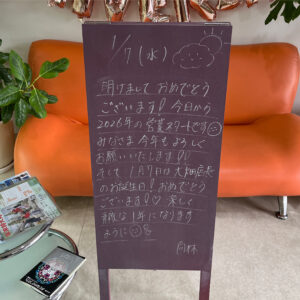 1/7(水)
明けまして おめでとう
ございます! 今日から
2026年の営業スタートです
みなさま今年もよろしく
お願いいたします!!
そして 1月7日は大畑店長
のお誕生日! おめでとう
ございます!♡ 楽しく
素敵な1年になります
ように